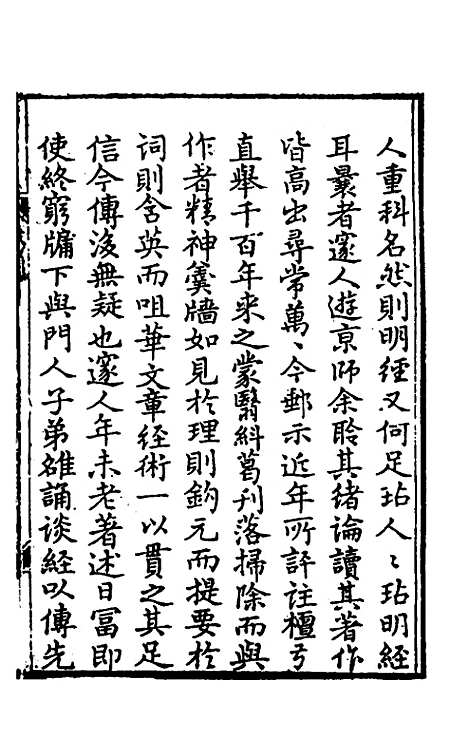 人重科名然則明經又何足玷人〻玷明經
耳曩者邃人遊京師余聆其緒論讀其著作
皆高出尋常萬〻今郵示近年所評註檀弓
直舉千百年來之蒙翳糾葛刋落掃除而與
作者精神羹牆如見於理則鈎元而提要於
詞則含英而咀華文章經術一以貫之其足
信今傳後無疑也邃人年未老著述日富即
使終窮牖下與門人子弟雒誦談經以傳先